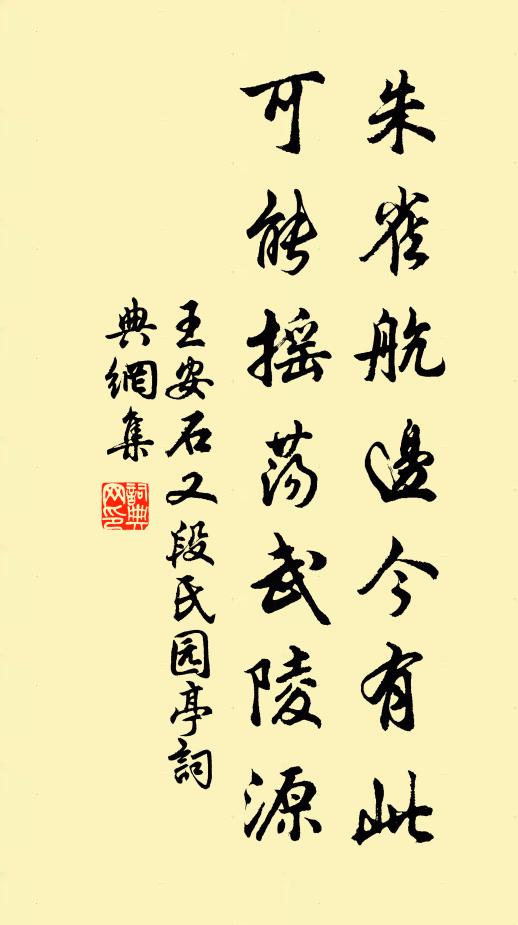 朱雀航邊今有此
可能摇蕩武陵源
王安石又段氏园亭詞
典網集
詞典
网印